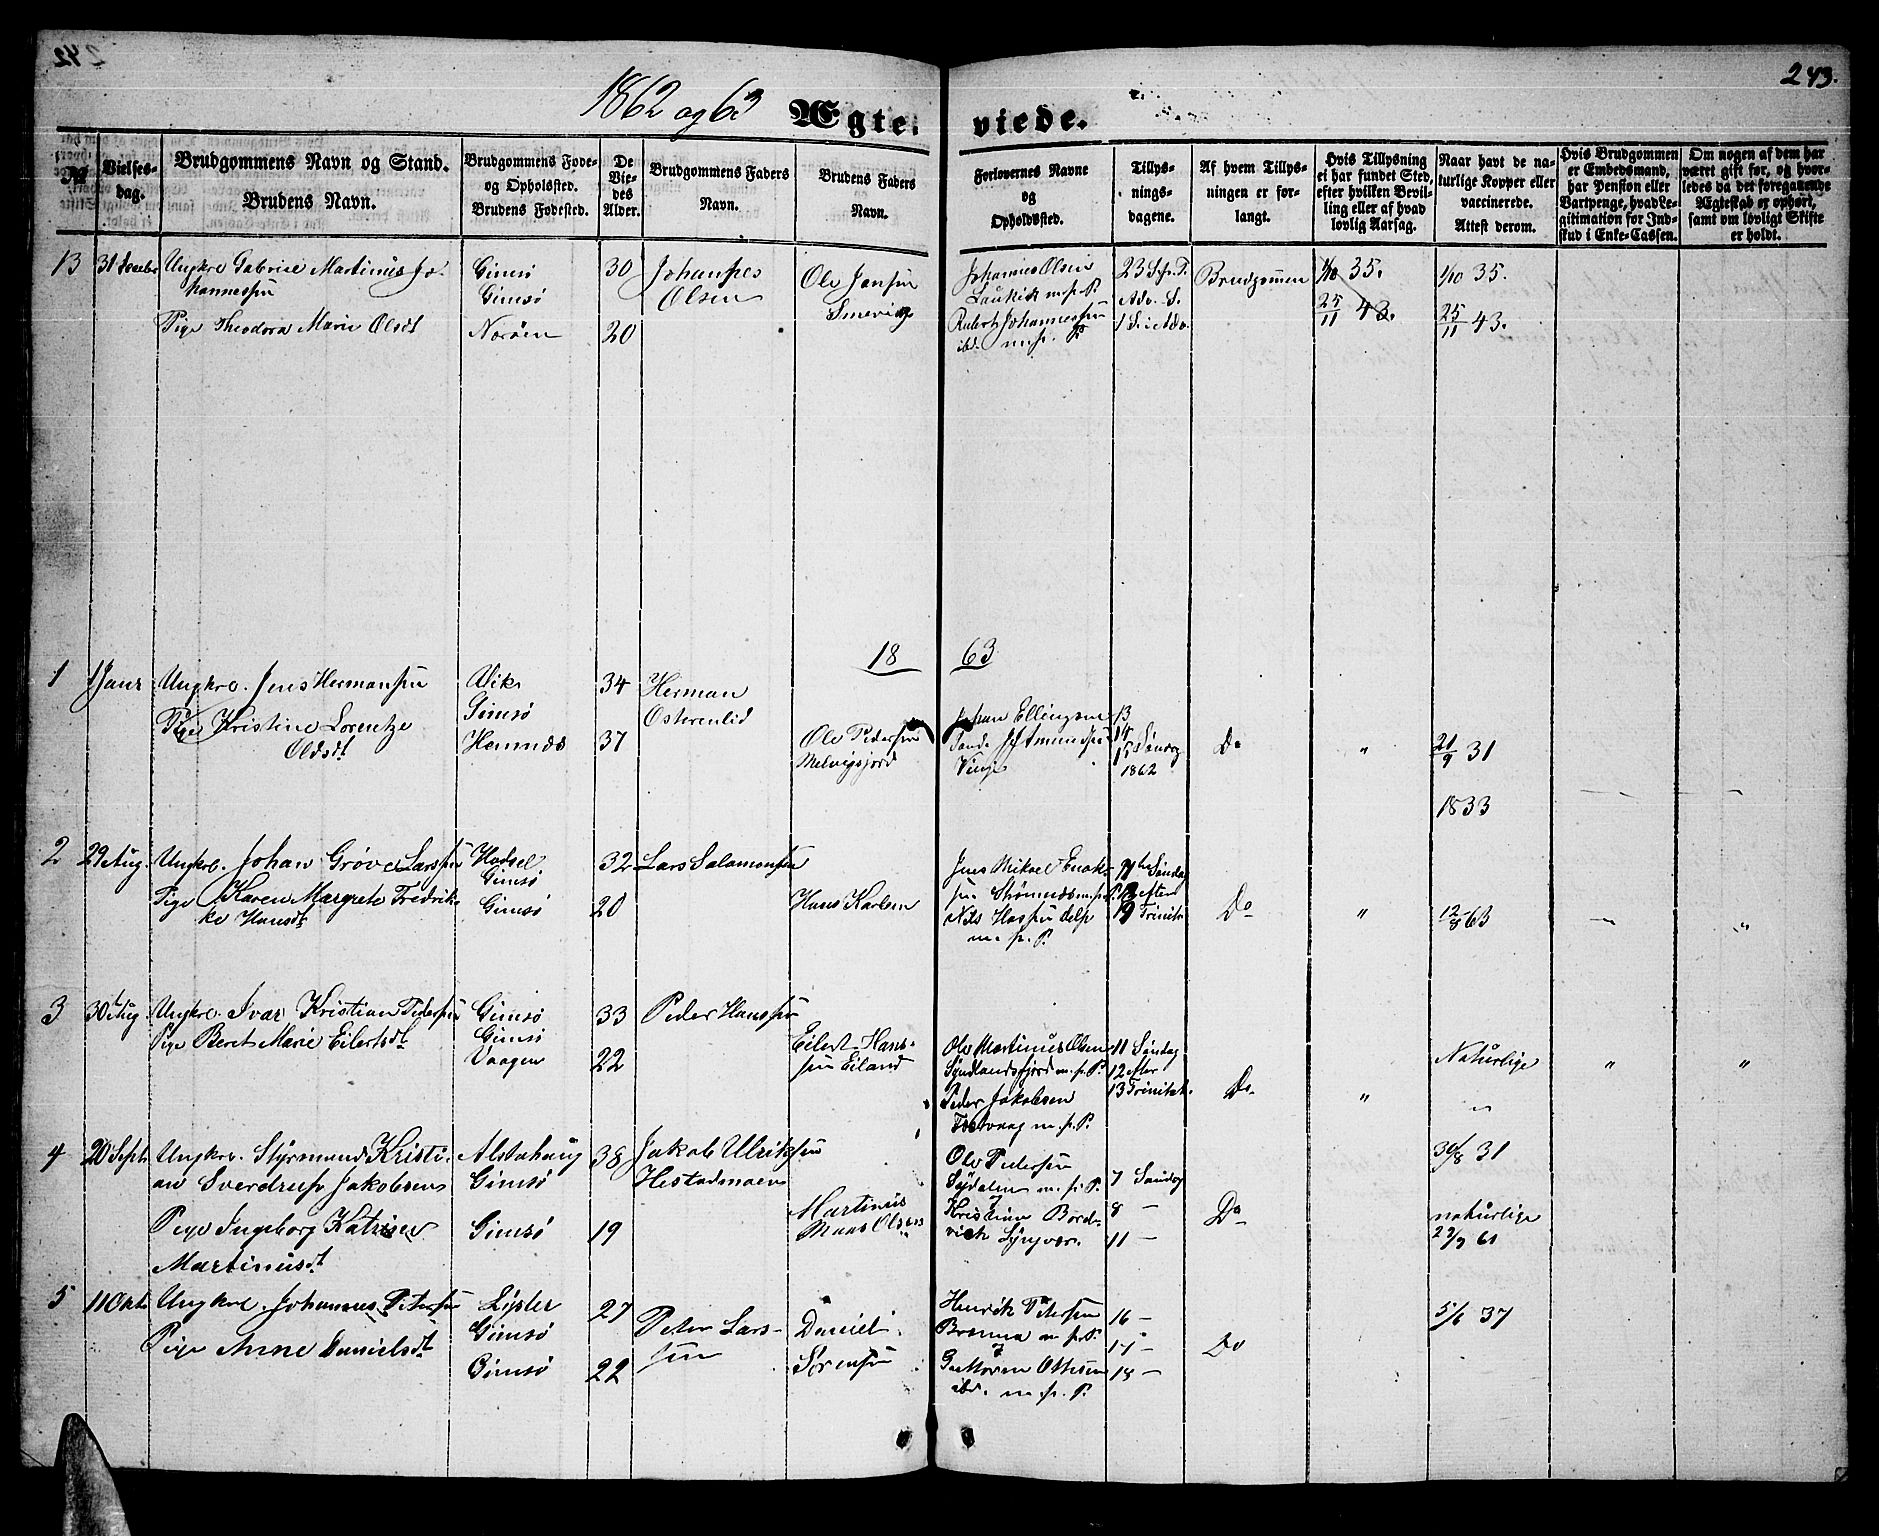 242
243.
1862 og 63
Ægte-
viede.
№
Vielses-
dag.
Brudgommens Navn og Stand.
Brudens Navn.
Brudgommens Føde-
og Opholdsted.
Brudens Fødested.
De
Vie-
des
Alder.
Brudgommens Faders
Navn.
Brudens Faders
Navn.
Forlovernes Navne
og
Opholdssted.
Tillys-
nings-
dagene.
Af hvem Tillys-
ningen er for-
langt.
Hvis Tillysning
ei har fundet Sted,
efter hvilken Bevil-
ling eller af hvad
lovlig Aarsag.
Naar havt de na-
turlige Kopper eller
vaccinerede.
Attest derom.
Hvis Brudgommen
er Embedsmand,
har Pension eller
Vartpenge, hvad Le-
gitimation for Ind-
skud i Enke-Cassen.
Om nogen af dem har
været gift før, og hvor-
ledes da det foregaaende
Ægteskab er ophørt,
samt om lovligt Skifte
er holdt.
13
31
Ungkrl Gabriel Martinus Jo-
hannessen
Pige Theodora Marie Olsdt
Gimsø
Gimsø
Norøen
30
20
Johannes
Olsen
Ole Jansen
Smevig
Johannes Olsen
Laukvik m. p. P.
Robert Johannessen
ibd. m. p. P.
23 S. e. T.
Adv. S.
1 S. i Adv.
Brudgommen
1/10 35.
25/11 43.
1/10 35.
25/11 43.
18
63
1
1 Janr
Ungkrl. Jens Hermansen
Pige Kristine Lorentze
Olsdt
Vik
Gimsø
Hemnæs
34
37
Herman
Osterenlid
Ole Pedersen
Melvigsjord
Johan Ellingsen
Sand
13
14
15 Søndag
1862
Do
"
21/9 31
1833
—
—
2
29 Aug.
Ungkrl. Johan Grøve Larsen
Pige Karen Margrete Fredrik-
ke Hansdt
Hadsel
Gimsø
Gimsø
32
20
Lars Salamonsen
Hans Karlsen
Jens Mikael Enok-
sen Strømnæs m. p. P.
Nils
m. p. P.
11te Søndag
12 efter
Trinit.
Do
"
12/8 63
—
"
3
30 Aug.
Ungkrl. Ivar Kristian Pedersen
Pige Beret Marie Eilertsdt
Gimsø
Gimsø
Vaagen
33
22
Peder Hanssen
Eilert Hans-
sen Eiland
Ole Martinus Olsen
Syndlandsfjord m. p. P.
Peder Jakobsen
Festvaag m. p. P.
11 Søndag
12 efter
13 Trinitat.
Do
"
Naturlige
"
"
"
4
20 Septr
Ungkrl. Styrmand Kristi-
an Sverdrup Jakobsen
Pige Ingeborg Katrine
Martinusdt
Alstahaug
Gimsø
Gimsø
38
19
Jakob Ulriksen
Hestadmoen
Martinus
Maas Olsen
Ole Pedersen
Sydalen m. p. P.
Kristian Bord-
vick Lyngvær.
7 Søndag
8 —
11 —
Do
30/8 31
naturlige
22/9 61
5
11 Okt
Ungkrl. Johannes Petersen
Pige Anne Danielsdt
Lyster
Gimsø
Gimsø
27
22
Peter Lars-
sen
Daniel
Sørensen
Henrik Petersen
Brenna m. p. P.
Ottesen
ibd. m. p. P.
16 —
17 —
18 —
Do
5/6 37